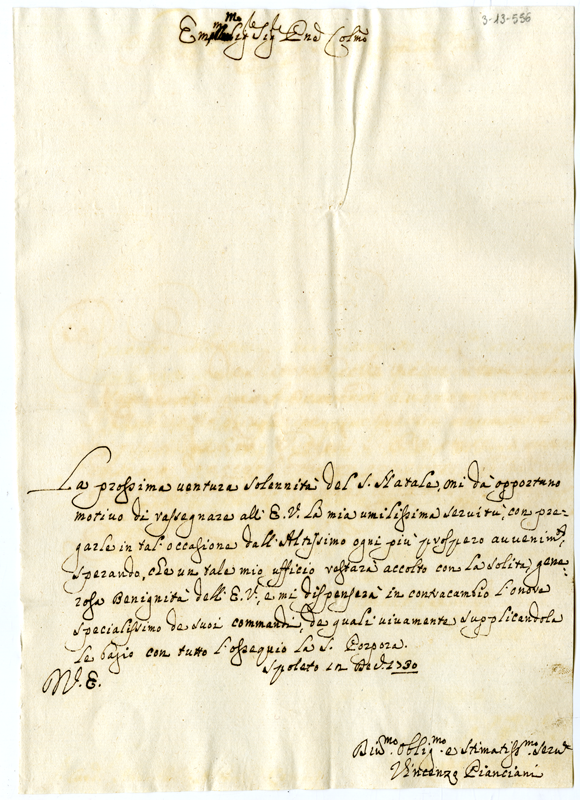 3-13-536
Em.mo Sig.re Sig.re Pnē Col.mo
La prossima ventura solennità del S. Natale, mi dà opportuno
motivo di rassegnare all' E. V. la mia umilissima servitù, con pre-
garle in tal' occasione dall' Altissimo ogni più prospero auvenim.to
sperando, che un tale mio ufficio restarà accolto con la solita gene-
rosa Benignità dell' E. V., e mi dispenserà in contracambio l'onore
specialissimo de suoi comandi, de quali vivamente supplicandola
le bagio con tutto l'ossequio la S. Porpora.
Spoleto 1730
V. E.
Oblig.mo e
Vincenzo Pianciani